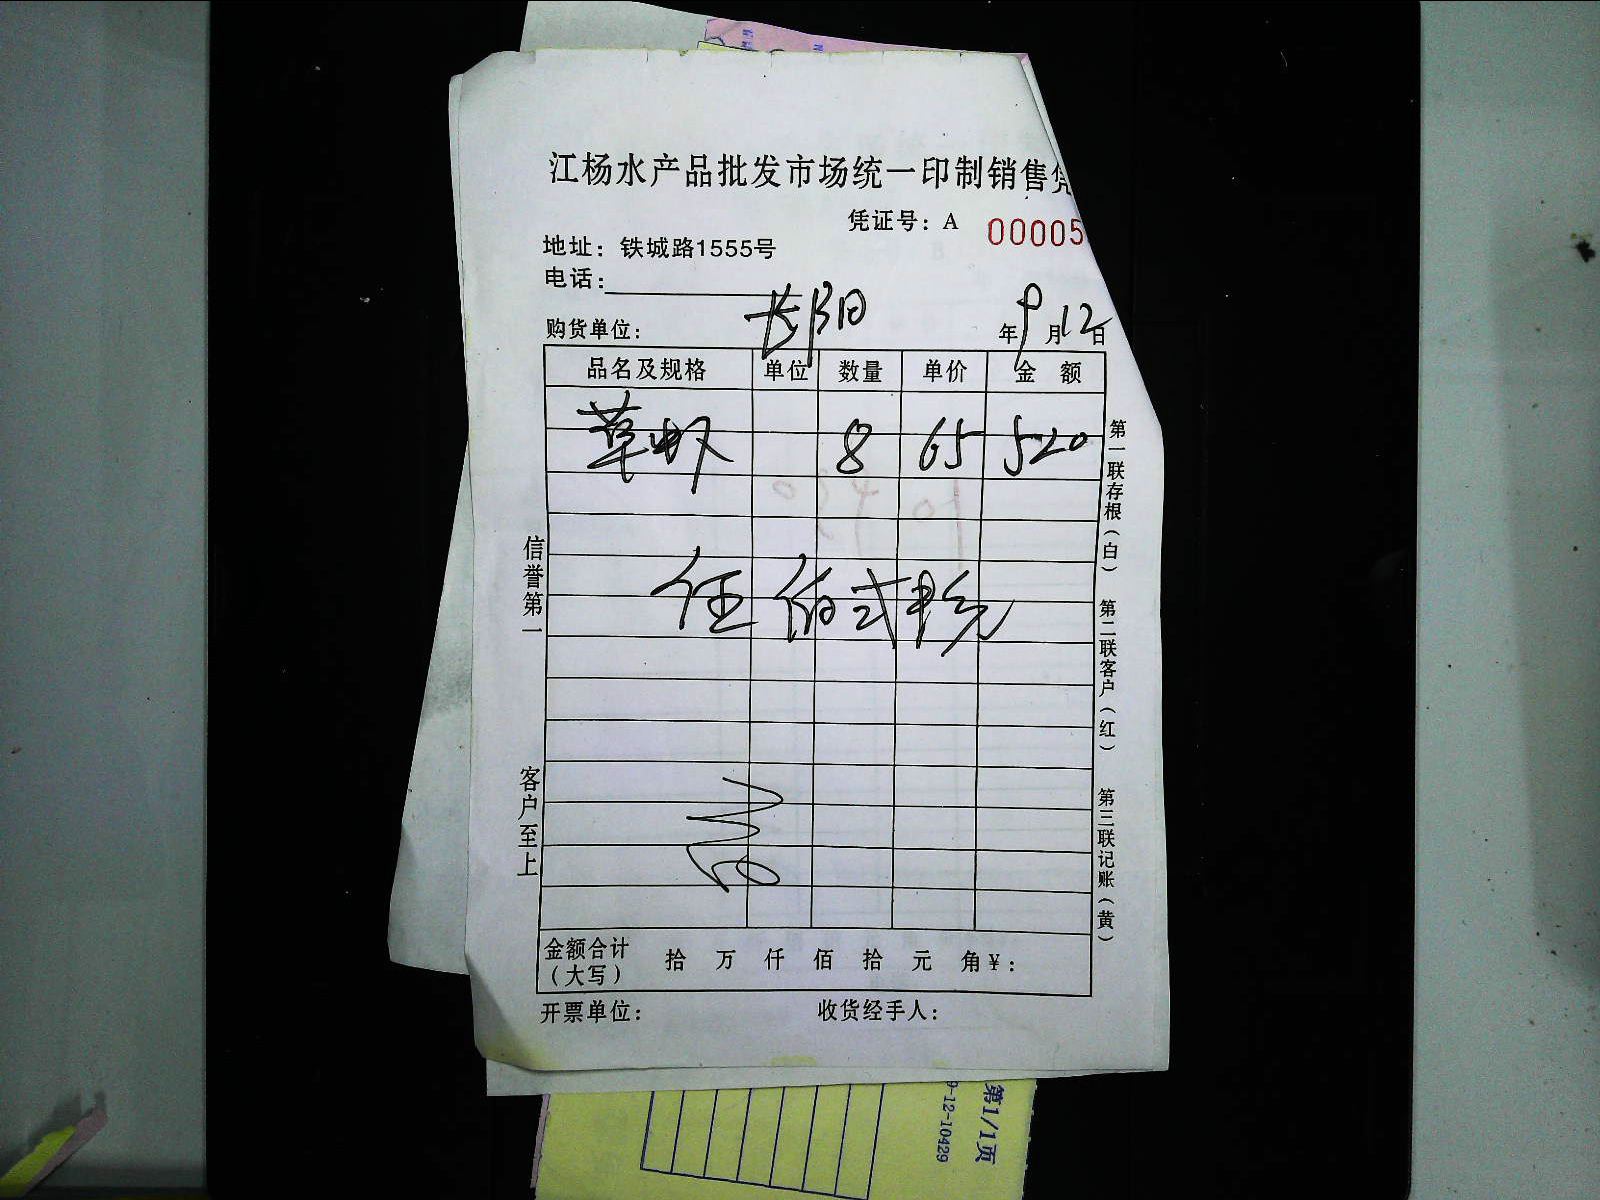 江杨水产品批发市场统一印制销售凭
凭证号：A 00005
地址：铁城路1555号
电话：
购货单位：长阳 年9月12日
品名及规格 单位 数量 单价 金额
草虾 8 65 520
伍佰式拾元
金额合计（大写） 拾 万 仟 佰 拾 元 角￥：
开票单位： 收货经手人：
信誉第一 客户至上
第一联存根（白） 第二联客户（红） 第三联记账（黄）
第1/1页
9-12-10429